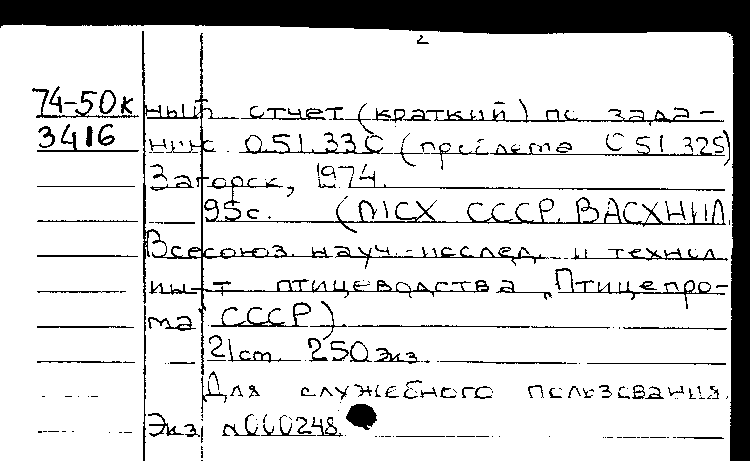 2
74-50к ный отчет (краткий) по зада-
3416 нию 051.33С (проблема С 51.325)
Загорск, 1974.
95с. (МСХ СССР. ВАСХНИЛ.
Всесоюз. науч.-исслед. и технол.
ин-т птицеводства "Птицепро-
ма" СССР).
21 cm. 250 экз.
Для служебного пользования.
Экз. N000248.